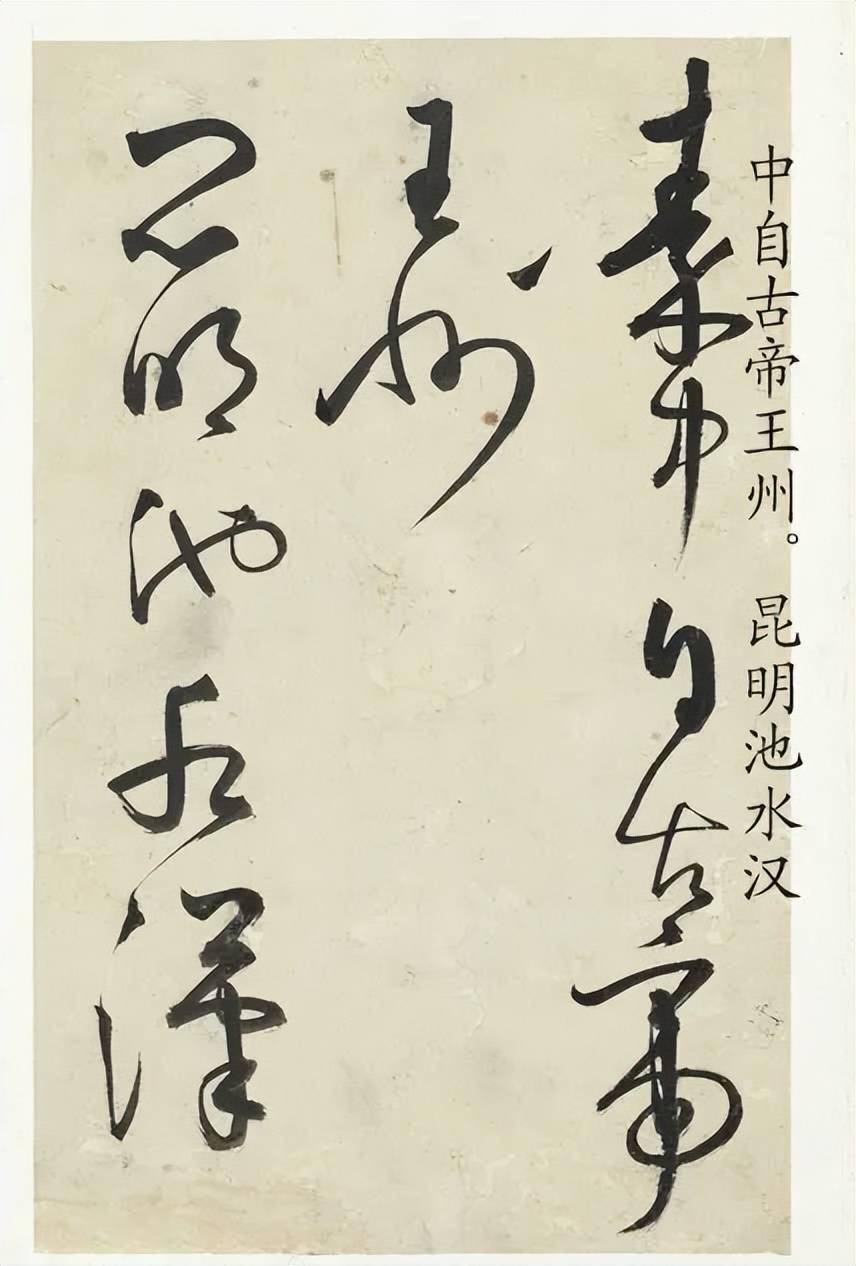 中自古帝王州。 昆明池水汉
秦中自古帝
王州
昆明池水漢